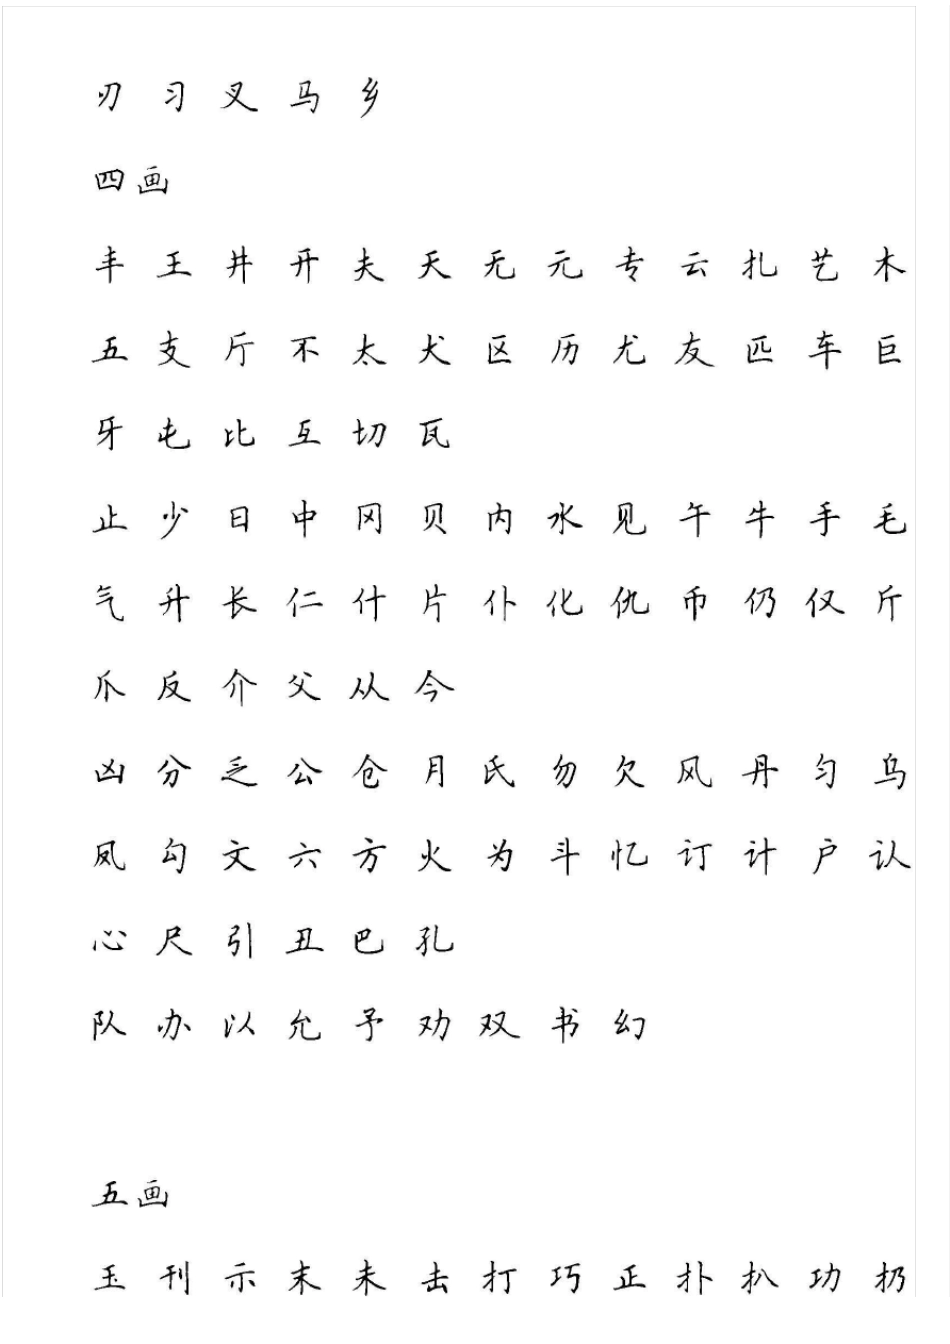 刃 习 叉 马 乡
四画
丰 王 井 开 夫 天 无 元 专 云 扎 艺 木
五 支 厅 不 太 犬 区 历 尤 友 匹 车 巨
牙 屯 比 互 切 瓦
止 少 日 中 冈 贝 内 水 见 午 牛 手 毛
气 升 长 仁 什 片 仆 化 仇 币 仍 仅 斤
爪 反 介 父 从 今
凶 分 乏 公 仓 月 氏 勿 欠 风 丹 匀 乌
凤 勾 文 六 方 火 为 斗 忆 订 计 户 认
心 尺 引 丑 巴 孔
队 办 以 允 予 劝 双 书 幻
五画
玉 刊 示 末 未 击 打 巧 正 扑 扒 功 扔